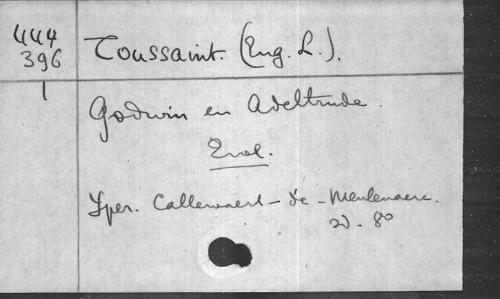 444
396
1
Toussaint. (Eug. L.).
Godwin en Adeltrude.
Yper. Callewaert-de-Meulenaere.
8º